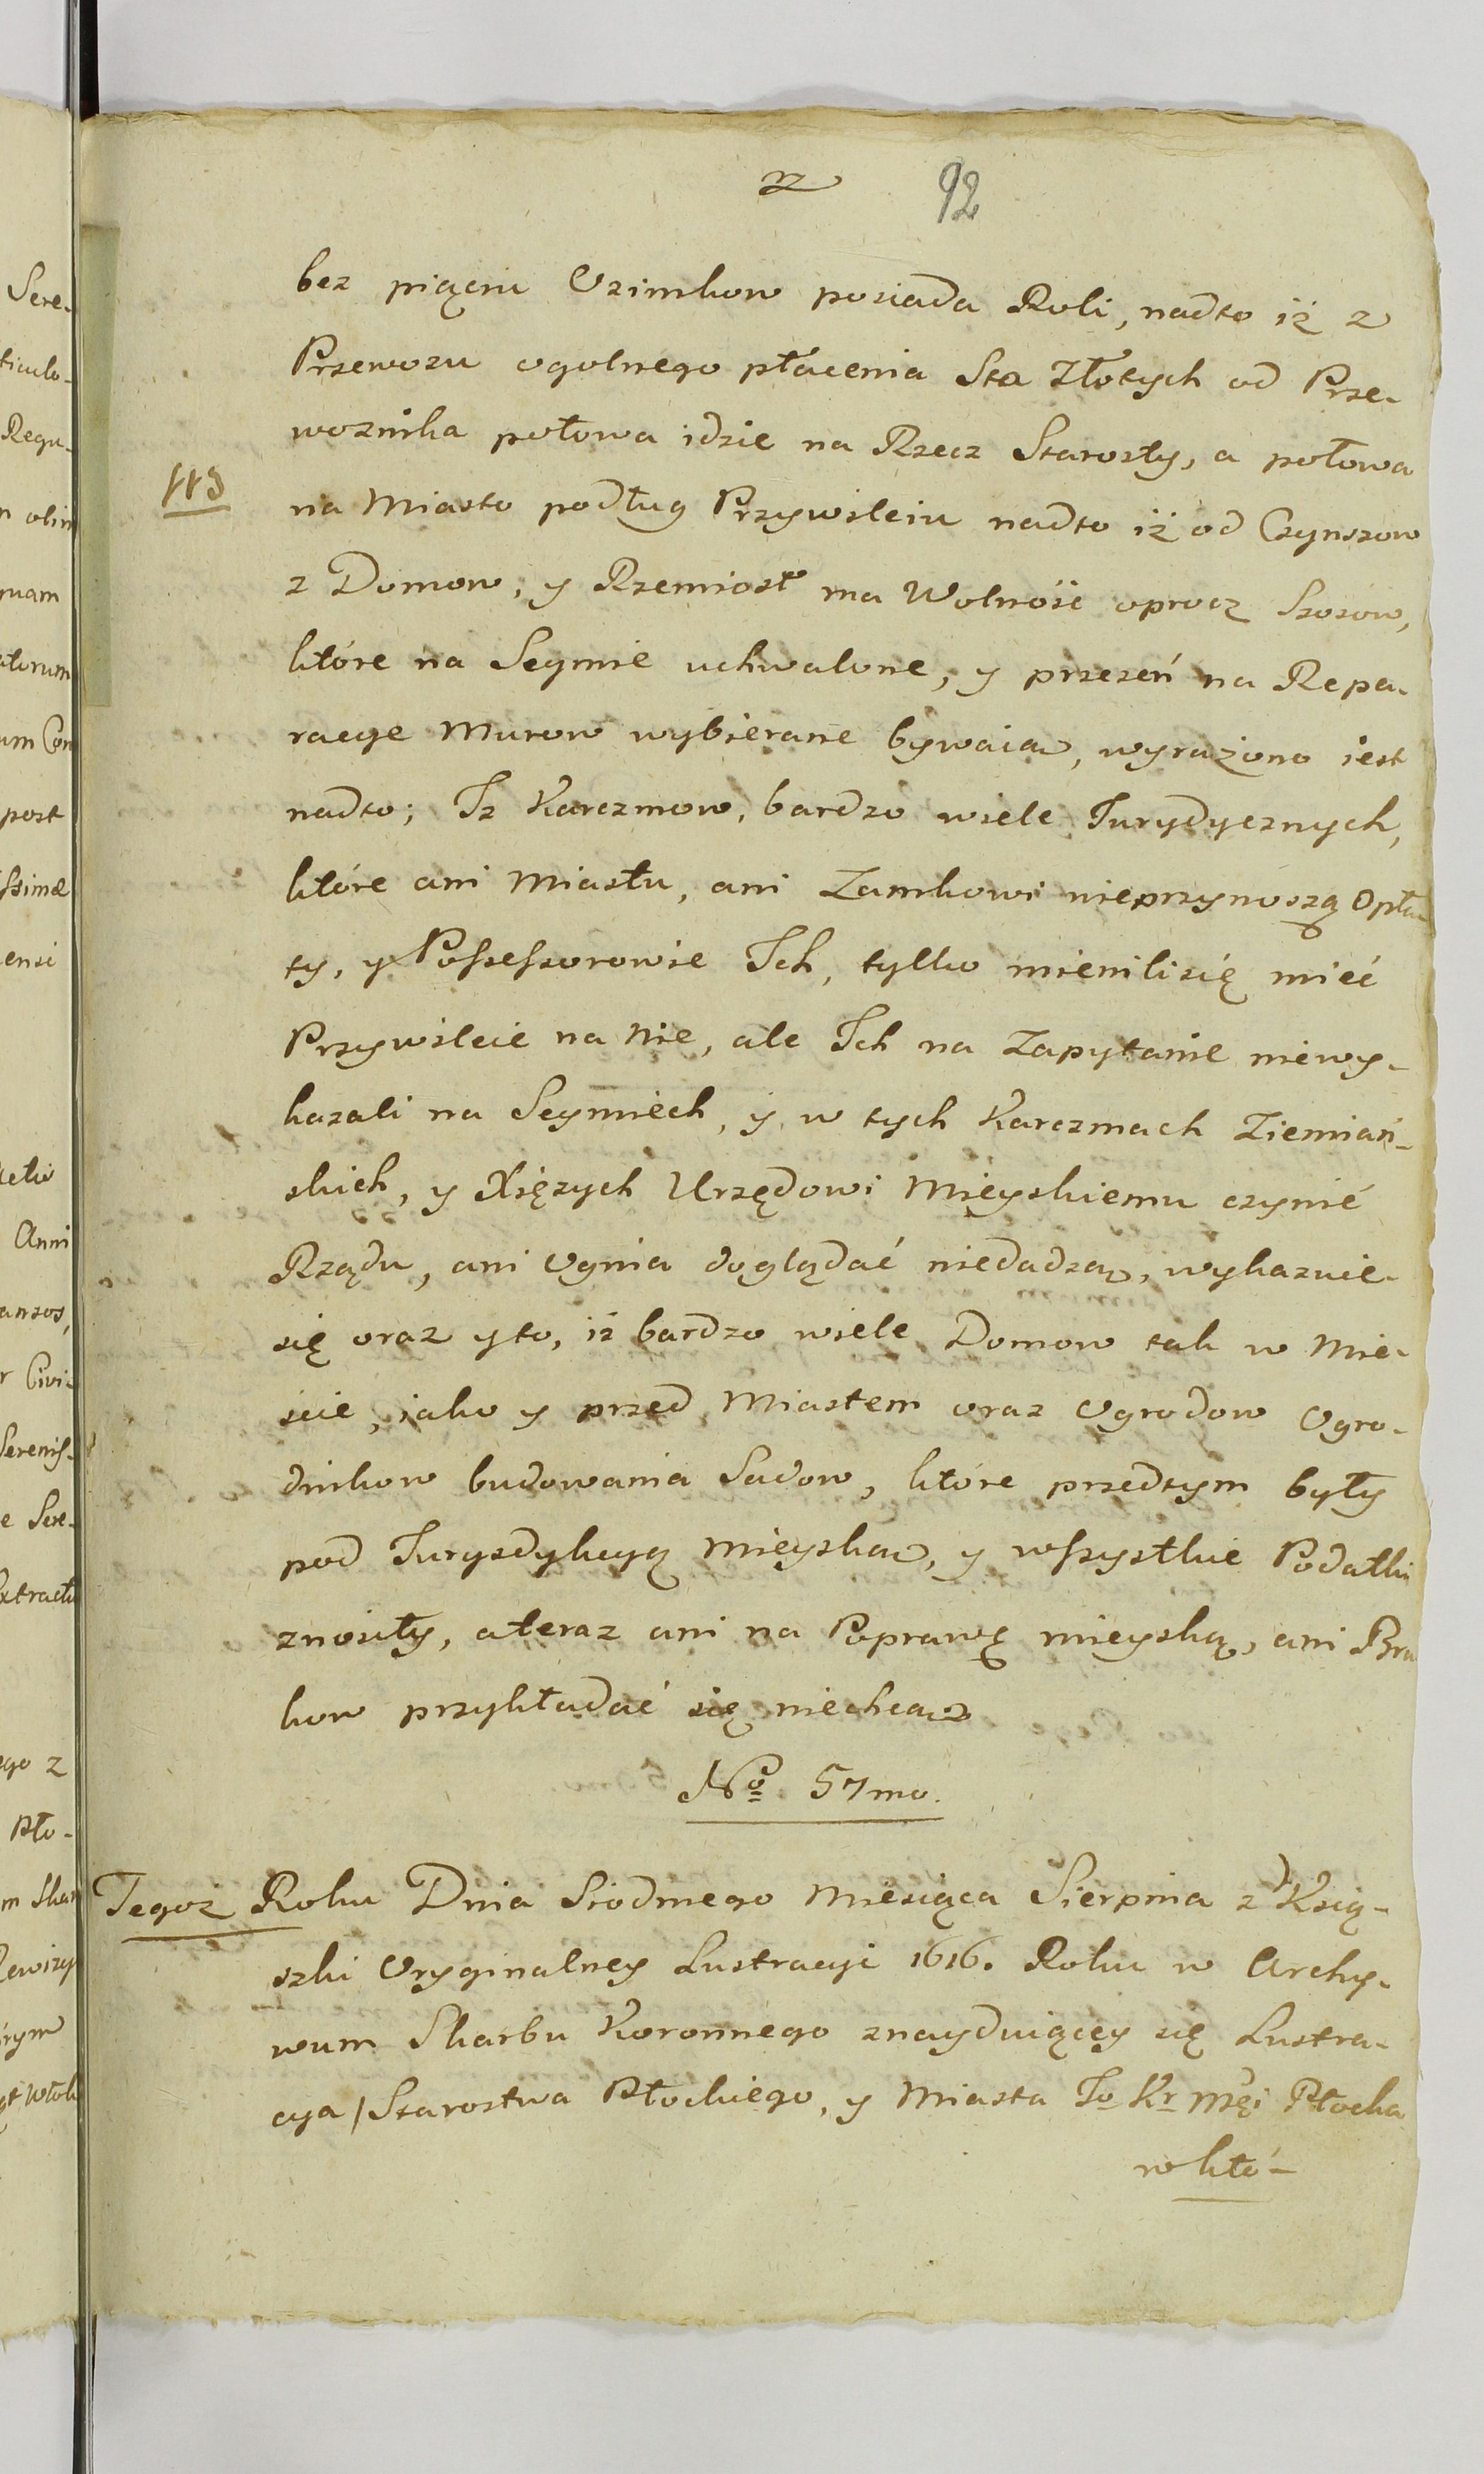 92
bez piąciu Ozimkow posiada Roli, nadto iż z
Przewozu ogolnego płacenia Sta Złotych od Prze-
woznika połowa idzie na Rzecz Starosty, a połowa
na Miasto podług Przywileiu nadto iż od Czynszow
z Domow, y Rzemiosł ma Wolność oprocz Szosow,
które na Seymie uchwalone, y przezeń na Repa-
racye Murow wybierane bywaią, wyrażono iest
nadto; Iz Karczmow, bardzo wiele Jurydycznych,
które ani Miastu, ani Zamkowi nieprzynoszą Opła
ty, y Possessorowie Ich, tylko mienili się mieć
Przywileie na Nie, ale Ich na Zapytanie niewy-
kazali na Seymiech, y w tych Karczmach Ziemiań-
skich, y Xiężych Urzędowi Mieyskiemu czynić
Rządu, ani Ognia doglądać niedadzą, wykazuie-
się oraz y to, iż bardzo wiele Domow tak w Mie-
scie, iako y przed Miastem oraz Ogrodow Ogro-
dnikow budowania Sadow, które przedtym były
pod Jurysdykcyą Mieyską, y wszystkie Podatki
znosiły, a teraz ani na Poprawę mieyską, ani Bru
kow przykładać się niechcą
No 57mo.
Tegoż Roku Dnia Siodmego Miesiąca Sierpnia z Ksią-
szki Oryginalney Lustracyi 1616. Roku w Archy-
wum Skarbu Koronnego znayduiącey się Lustra-
cya Starostwa Płockiego, y Miasta Jo Kr Mci Płocka
w któ-